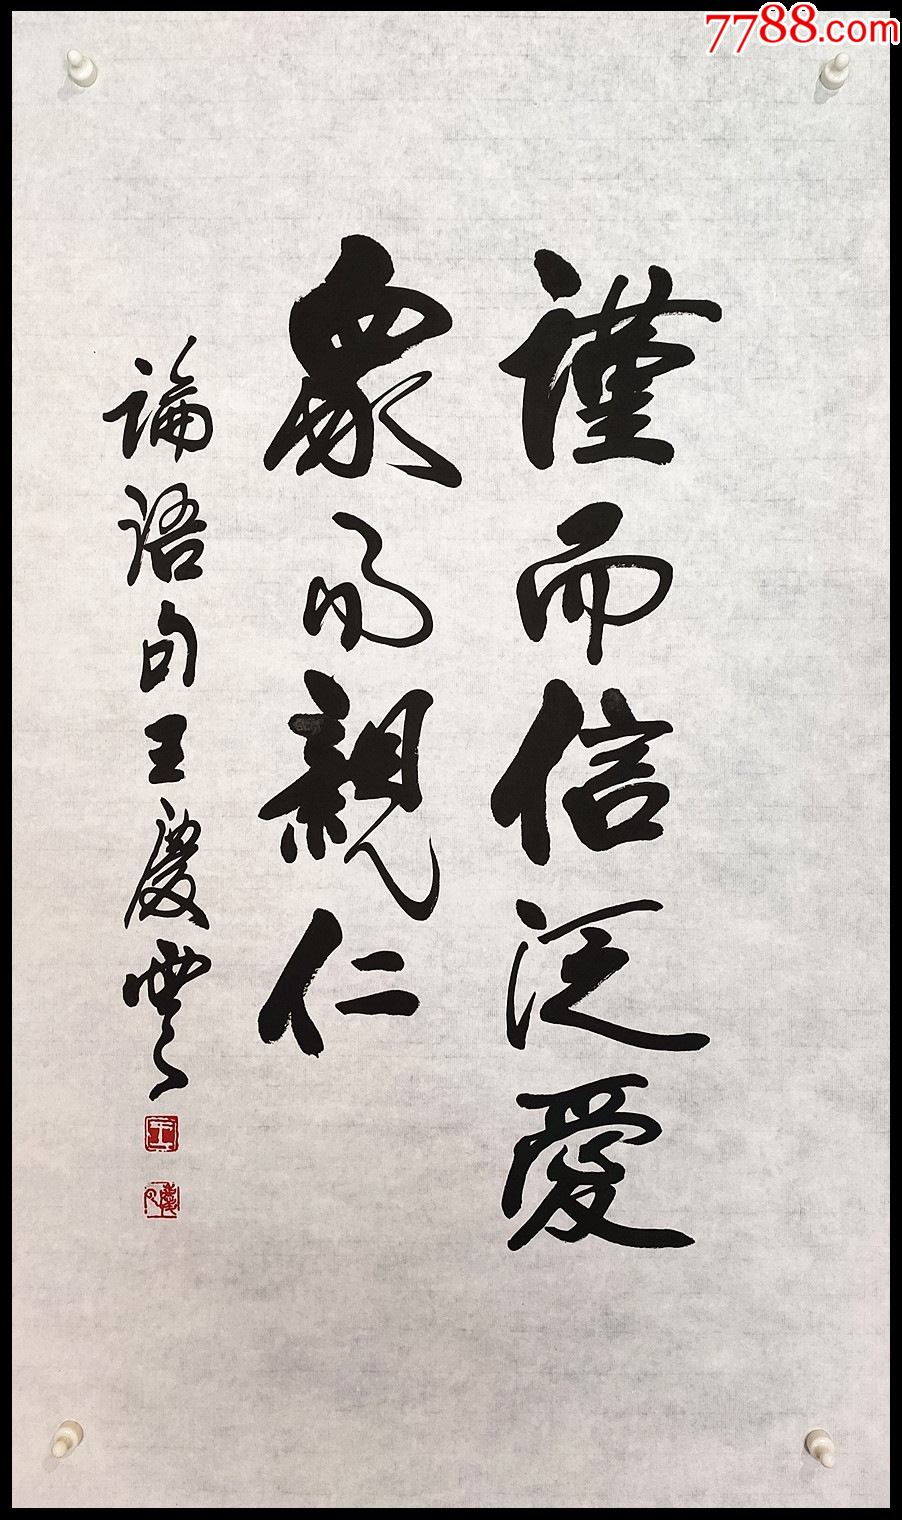 7788.com
謹而信泛愛
衆而親仁
論語句王慶雲
王